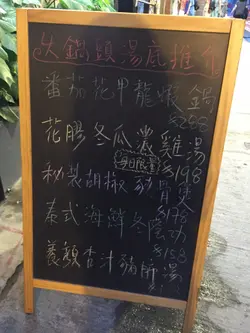 火鍋頭湯底推介
番茄花甲龍蝦鍋
$258
花膠冬瓜濃雞湯
每日限量 $198
秘製胡椒豬骨煲
$178
泰式海鮮冬陰功
$158
養顏杏汁豬𦟌湯